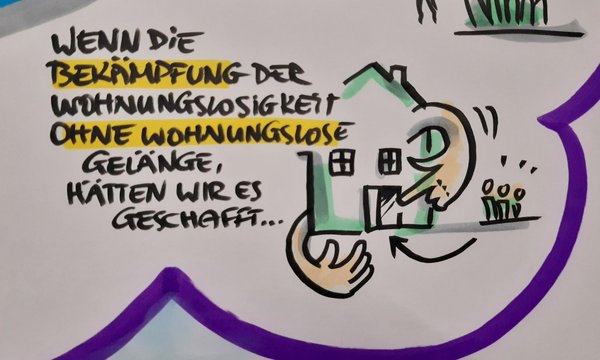 WENN DIE
BEKÄMPFUNG DER
WOHNUNGSLOSIGKEIT
OHNE WOHNUNGSLOSE
GELÄNGE,
HÄTTEN WIR ES
GESCHAFFT...